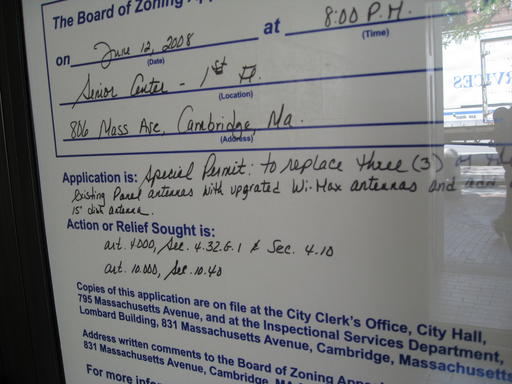 The Board of Zoning
on June 12, 2008 at 8:00 P.M.
(Date) (Time)
Senior Center - 1st fl.
(Location)
806 Mass Ave, Cambridge, Ma.
(Address)
Application is: Special Permit: to replace three (3) of the
existing Panel antennas with upgrated Wi-Max antennas and
15" dish antenna.
Action or Relief Sought is:
art. 4.000, Sec. 4.32.G.1 & Sec. 4.10
art. 10.000, Sec. 10.40
Copies of this application are on file at the City Clerk's Office, City Hall,
795 Massachusetts Avenue, and at the Inspectional Services Department,
Lombard Building, 831 Massachusetts Avenue, Cambridge, Massachusetts
Address written comments to the Board of Zoning
831 Massachusetts Avenue, Cambridge,
For more